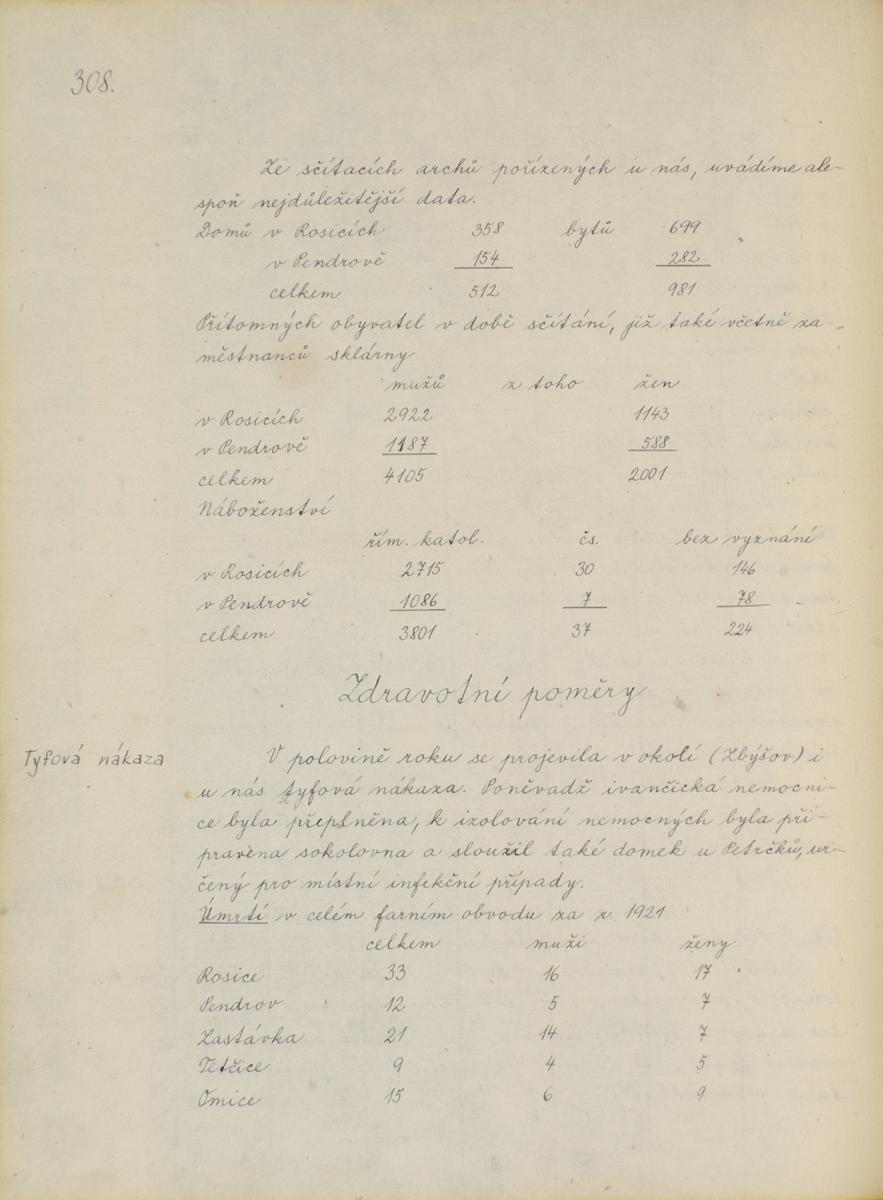 308.
Ze sčítacích archů pořízených u nás, uvádíme ale-
spoň nejdůležitější data.
Domů v Rosicích 358 bytů 699
v Pendrově 154 282
celkem 512 981
Přítomných obyvatel v době sčítání, již také včetně za-
městnanců sklárny
mužů z toho žen
v Rosicích 2922 1143
v Pendrově 1187 588
celkem 4105 2001
Náboženství
řím. katol. čs. bez vyznání
v Rosicích 2715 30 146
v Pendrově 1086 7 78
celkem 3801 37 224
Zdravotní poměry
Tyfová nákaza V polovině roku se projevila v okolí (Zbýšov) i
u nás tyfová nákaza. Poněvadž ivančická nemocni-
ce byla přeplněna, k izolování nemocných byla při-
pravena sokolovna a sloužil také domek u Petrčků, ur-
čený pro místní infekční případy.
Úmrtí v celém farním obvodu za r. 1921
celkem muži ženy
Rosice 33 16 17
Pendrov 12 5 7
Zastávka 21 14 7
Tetčice 9 4 5
Omice 15 6 9